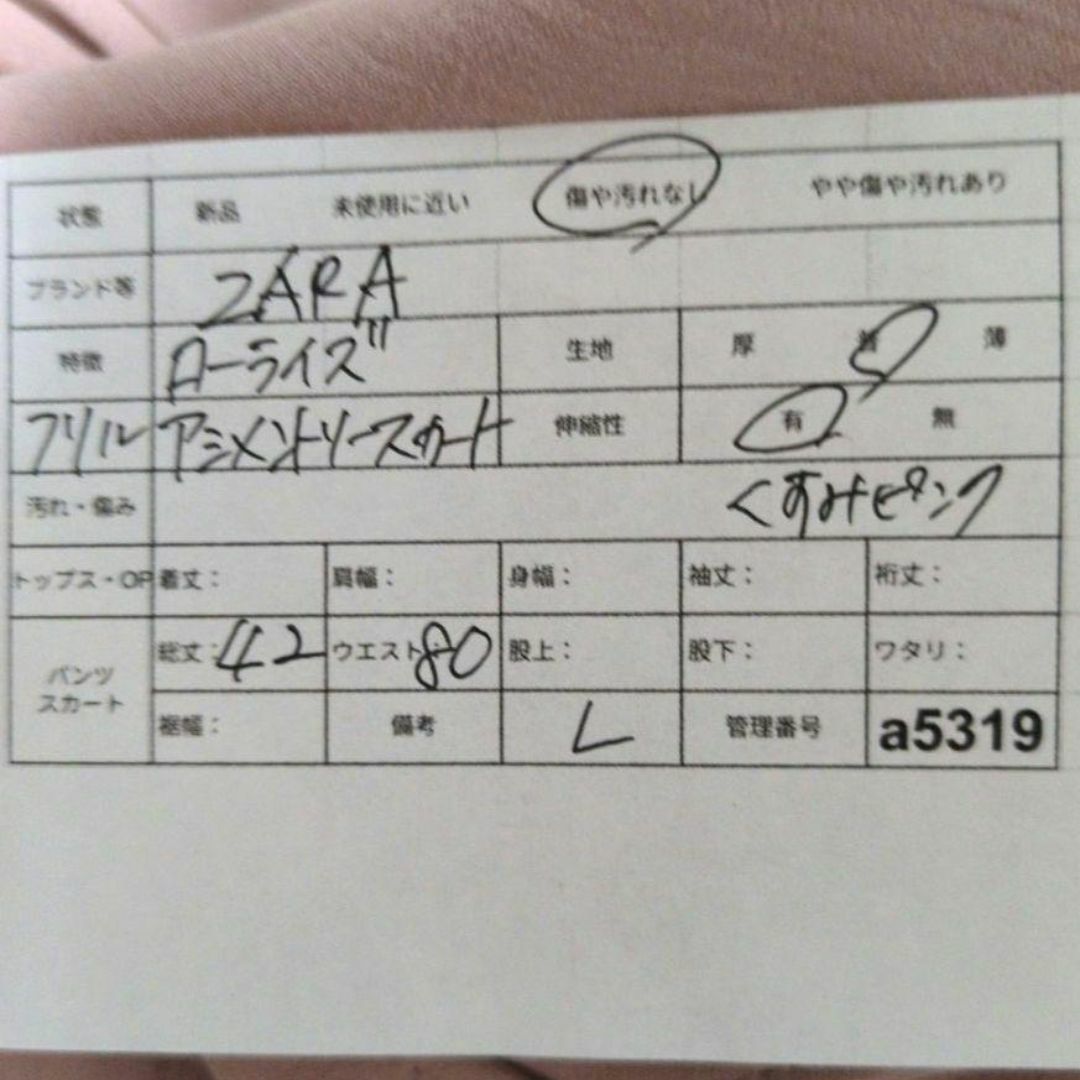 状態 新品 未使用に近い 傷や汚れなし やや傷や汚れあり
ブランド等 ZARA
特徴 ローライズ 生地 厚 普 薄
フリル アシメントリースカート 伸縮性 有 無
汚れ・傷み くすみピンク
トップス・OP 着丈: 肩幅: 身幅: 袖丈: 裄丈:
パンツ スカート 総丈:42 ウエスト:80 股上: 股下: ワタリ:
裾幅: 備考 L 管理番号 a5319